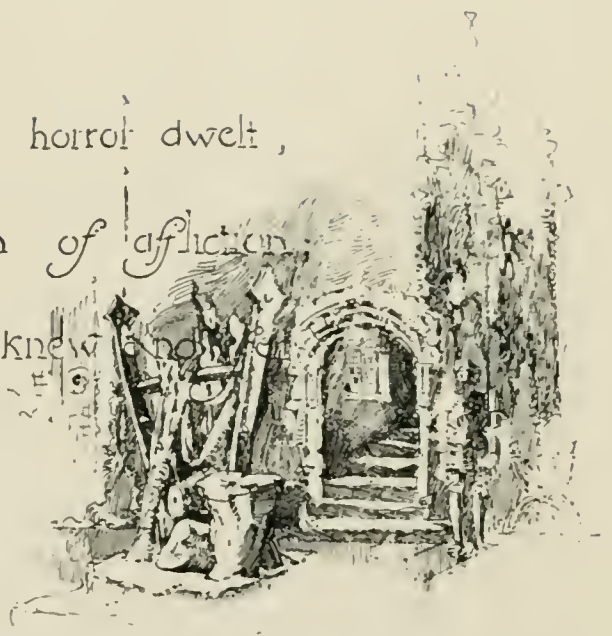 horror dwelt,
of affliction,
knew and